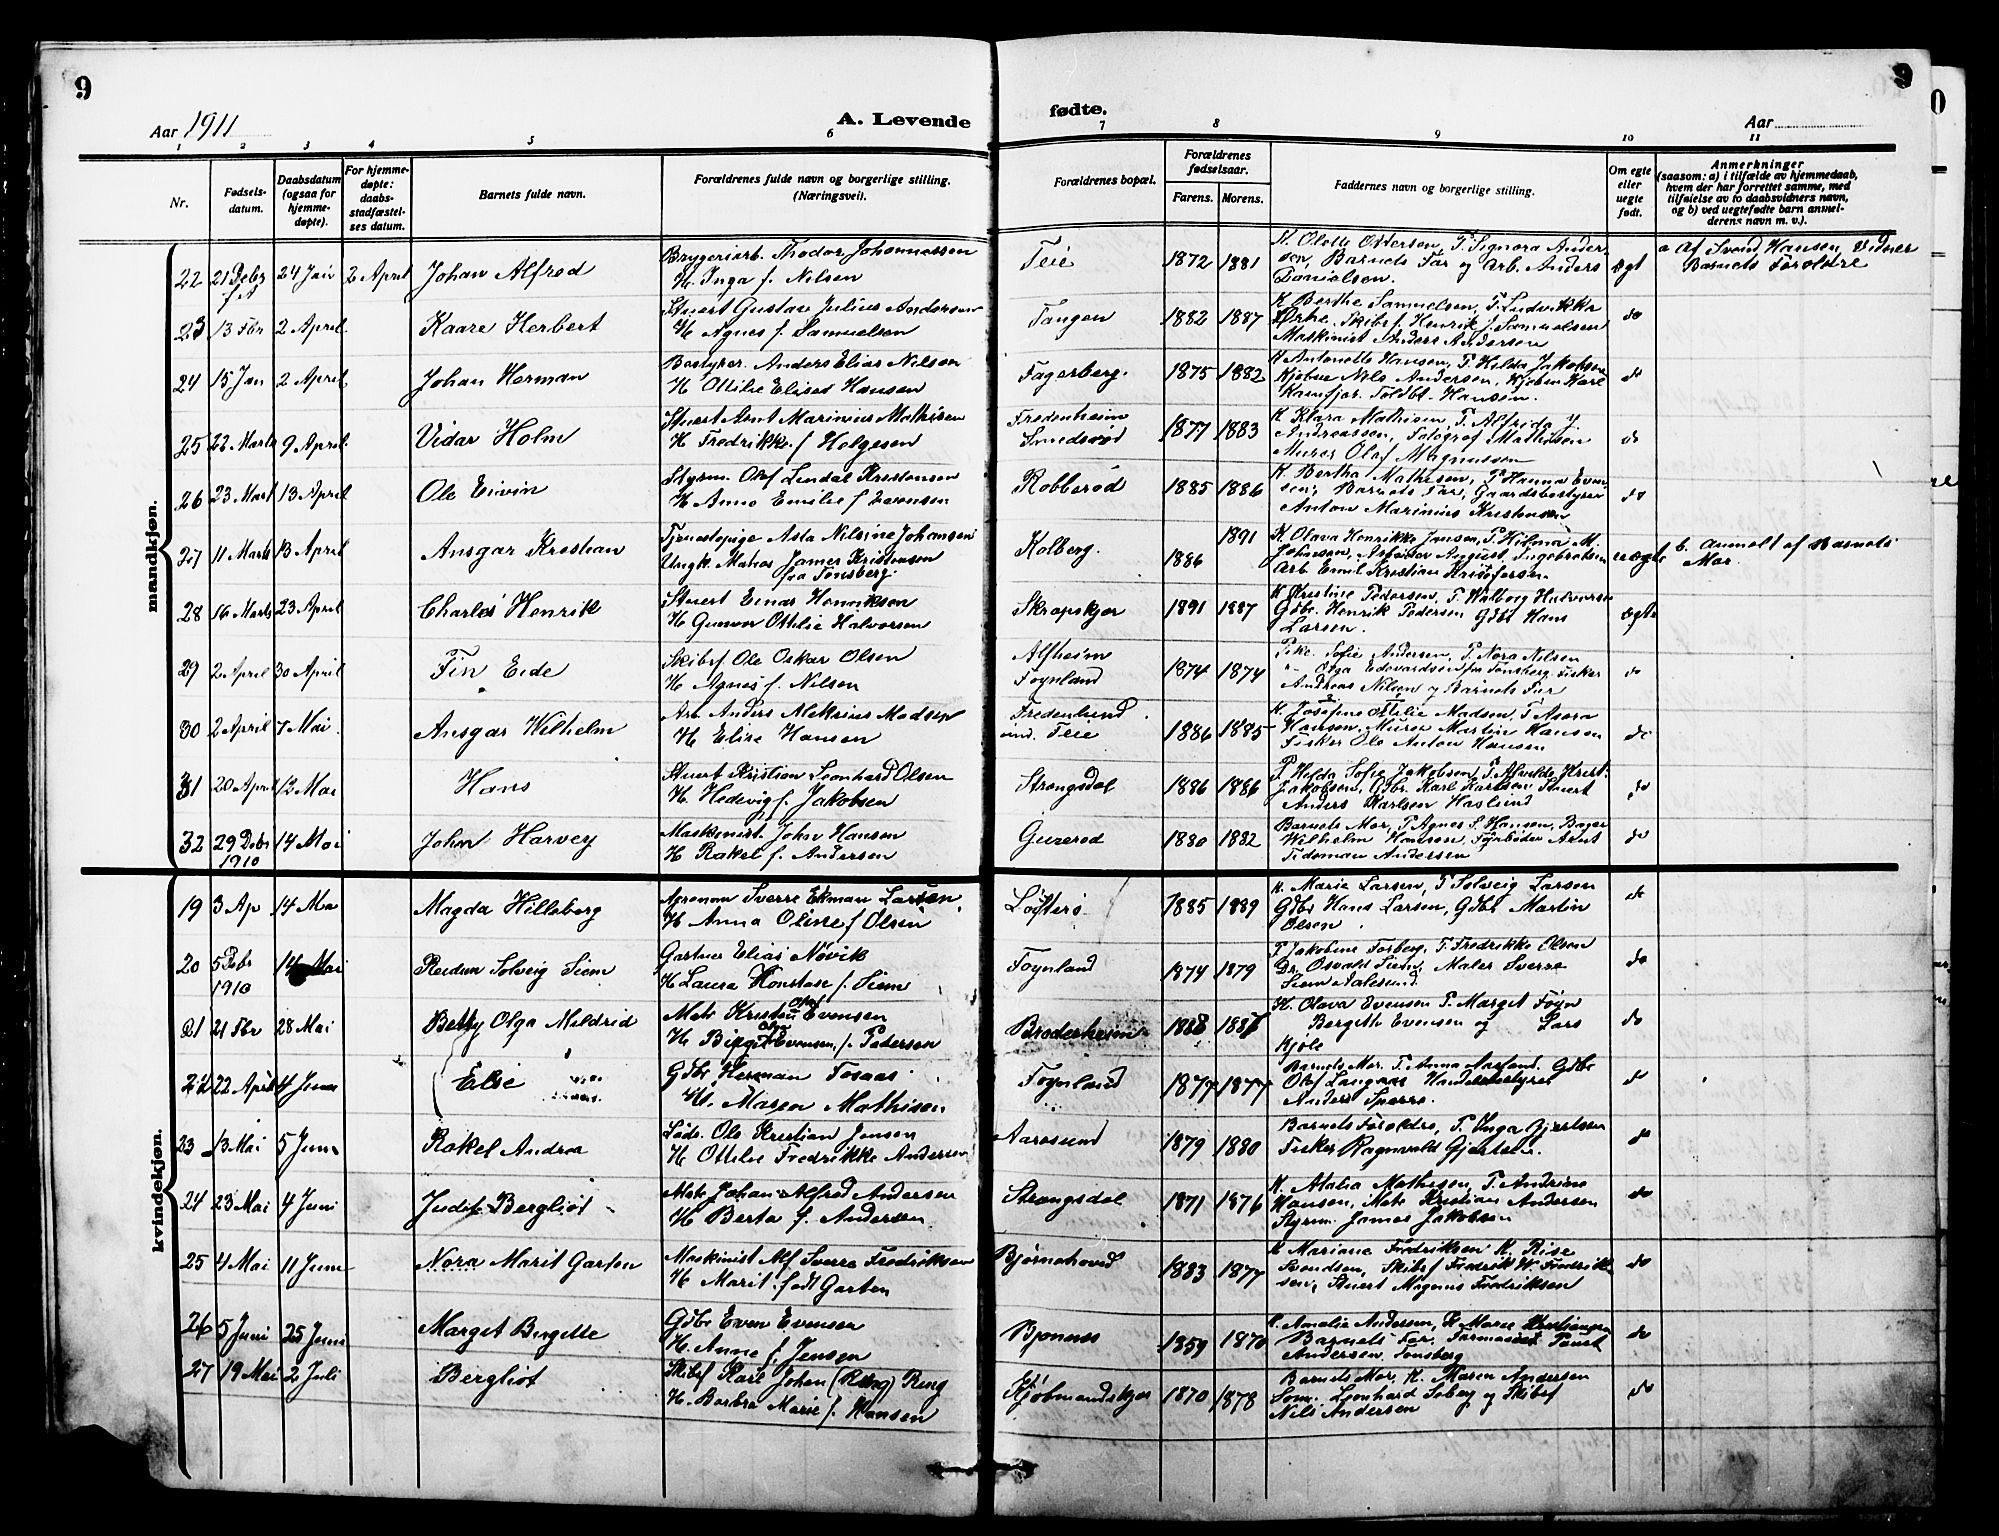 9
9
Aar 1911
A. Levende
fødte.
Aar
1 2 3 4 5 6 7 8 9 10 11
Nr.
Fødsels-
datum.
Daabsdatum
(ogsaa for
hjemme-
døpte).
For hjemme-
døpte:
daabs-
stadfæstel-
ses datum.
Barnets fulde navn.
Forældrenes fulde navn og borgerlige stilling.
(Næringsvei).
Forældrenes bopæl.
Forældrenes
fødselsaar.
Farens. Morens.
Faddernes navn og borgerlige stilling.
Om egte
eller
uegte
født.
Anmerkninger
(saasom: a) i tilfælde av hjemmedaab,
hvem der har forrettet samme, med
tilføielse av to daabsvidners navn,
og b) ved uegtefødte barn anmel-
derens navn m. v.).
mandkjøn.
22 21 Debr 24 Jan 2 April Johan Alfred
Bryggeriarb. Thodor Johannessen
H. Inga f. Nilsen
Teie 1872 1881
K. Olette Ottersen, P. Signora Ander
sen, Barnets Far og Arb. Anders
Danielsen.
ægt
a Af Svend Hansen, Vidner
Barnets Forældre
23 13 Fbr 2 April Kaare Herbert
Stuert Gustav Julius Andersen
H. Agnes f. Samuelsen
Tangen 1882 1887
K Berthe Samuelsen, P. Ludvikka
Ørke, Skibsf. Henrik J. Samuelsen
Maskinist Anders Andersen
do
24 15 Jan 2 April Johan Herman
Bestyrer. Anders Elias Nilsen
H Ottilie Elised Hansen
Fagerberg. 1875 1882
K Antonette Hansen, P. Helda Jakobsen
Kjøbm Nils Andersen, Kjøbm Kare
Kamfjor. Toldbt. Hansen.
do
25 22 Marts 9 April Vidar Holm
Stuert Gent Marinius Mathisen
H Fredrikke f Helgesen
Fredenheim
Smedsrød 1877 1883
K Klara Mathisen, P. Alfrida J.
Andreassen, Fotograf Mathisen
Murer Olaf Magnussen
do
26 23 Mart 13 April Ole Eivin
Styrm. Olaf Lindal Kristensen
H Anna Emilie f Sørensen
Robberød 1885 1886
K Bertha Mathesen, P Hanna Even
sen, Barnets Far, Gaardsbestyrer
Anton Marinius Kristensen
do
27 11 Marts 13 April Ansgar Kristian
Tjenestepige Asta Nilsine Johansen
Ungk. Matros James Kristensen
fra Tønsberg.
Kolberg. 1886 1891
K Olava Henrikke Jensen, P. Hilma M.
Johnsen, August Ingebretsen
Arb Emil Kristian Kristofersen.
uægte
b. anmelt af Barnets
Mor.
28 16 Marts 23 April Charles Henrik
Stuert Einar Henriksen
H Gunvor Ottilie Halvorsen
Skrapskjer 1891 1887
K Kristine Pedersen, P. Walborg Halvorsen
Gdbr. Henrik Pedersen Gdbr Hans
Larsen.
ægte
29 2 April 30 April Fin Eide
Skibsf Ole Oskar Olsen
H Agnes f. Nilsen
Alfheim
Føynland 1874 1874
Pike. Sofie Andersen, P. Nora Nilsen
"- Olga Edevardsen fra Tønsberg. Fisker
Andreas Nilsen og Barnets Far
do
30 2 April 7 Mai. Ansgar Wilhelm
Arb Anders Aleksius Madsen
H Elise Hansen
Fredenlund
ind. Teie 1886 1885
K. Josefine Ottilie Madsen, P Asora
Hansen, Murer Martin Hansen
Fisker Ole Anton Hansen
do
31 20 April 12 Mai Hans
Stuert Kristian Leonhard Olsen
H. Hedevig f. Jakobsen
Strangsdal 1886 1886
P. Helda Sofie Jakobsen, P. Krist.
Jakobsen, Gdbr. Karl Karlsen Stuert
Anders Karlsen Haslund
do
32 29 Debr
1910
14 Mai John Harvey
Maskinist. John Hansen
H Rakel f. Andersen
Guserød 1880 1882
Barnets Mor, P. Agnes S. Hansen, Bager
Wilhelm Hansen, Fyrbøder Arnt
Tideman Andersen
do
kvindekjøn.
19 3 Ap 14 Ma Magda Hilleborg
Sverre Ekman Larsen
H. Anna Oline f Olsen
Løkterø 1885 1889
K. Marie Larsen, P Solveig Larsen
Gdbr Hans Larsen, Gdbr Martin
Olsen
do
20 5 Debr
1910
14 Mai Reidun Solveig Siem
Gartner Elias Nøvik
H Laura Konstase f. Siem
Føynland 1874 1879
P Jakobine Forberg, P. Fredrikke Olsen
Dr. Osvald Siem, Maler Sverre
Siem Aalesund.
do
21 21 Fbr 28 Mai Betty Olga Mildrid
Mats Kristen Olaf Evensen
H Birgit Olga Evensen, f. Pedersen
Broderheim 1888
H. Olava Evensen P. Marget Føyn
Bergitte Evensen og Lars
Kjøle
do
22 22 April 4 Juni Else
Gdbr Herman Fosaas
H. Maren Mathisen
Føynland 1877 1877
Barnets Mor, P. Anna Aasland. Gdbr
Olaf Langaas Handelsbestyrer
Anders Sparre.
do
23 13 Mai 5 Juni Rakel Andrea
Lods. Ole Kristian Jensen
H Ottilie Fredrikke Andersen
Aarøsund 1879 1880
Barnets Forældre, P. Inga Gjertsen
Fisker Ragnvald Gjertsen.
do
24 23 Mai 4 Juni Judit Bergliot
Mats Johan Alfred Andersen
H Berta f. Andersen
Strangsdal 1871 1876
K. Atalia Mathesen, P. Andrine
Hansen, Mats Kristian Andersen
Styrm. James Jakobsen
do
25 4 Mai 11 Juni Nora Marit Garten
Maskinist Alf Sverre Fredriksen
H Marit. født Garten
Bjørnehoved 1883 1877
K Mariane Fredriksen K. Rise
Svendsen, Skibsf Fredrik W. Fredrik
sen, Stuert Magnus Fredriksen
do
26 5 Juni 25 Juni Marget Birgitte
Gdbr Even Evensen
H. Anne f. Jensen
Bjønnes 1859 1870
K. Amalie Andersen, K Marie Kristiansen
Barnets Far. Farmaseut Faust
Andersen, Tønsberg
do
27 19 Mai 2 Juli Bergliot
Skibsf Karl Johan (Ring) Ring
H. Barbra Marie f. Hansen
Kjøbmandskjær 1870 1878
Barnets Mor, K. Maren Andersen
Søm. Leonhard Soberg og Skibsf
Nils Andersen
do